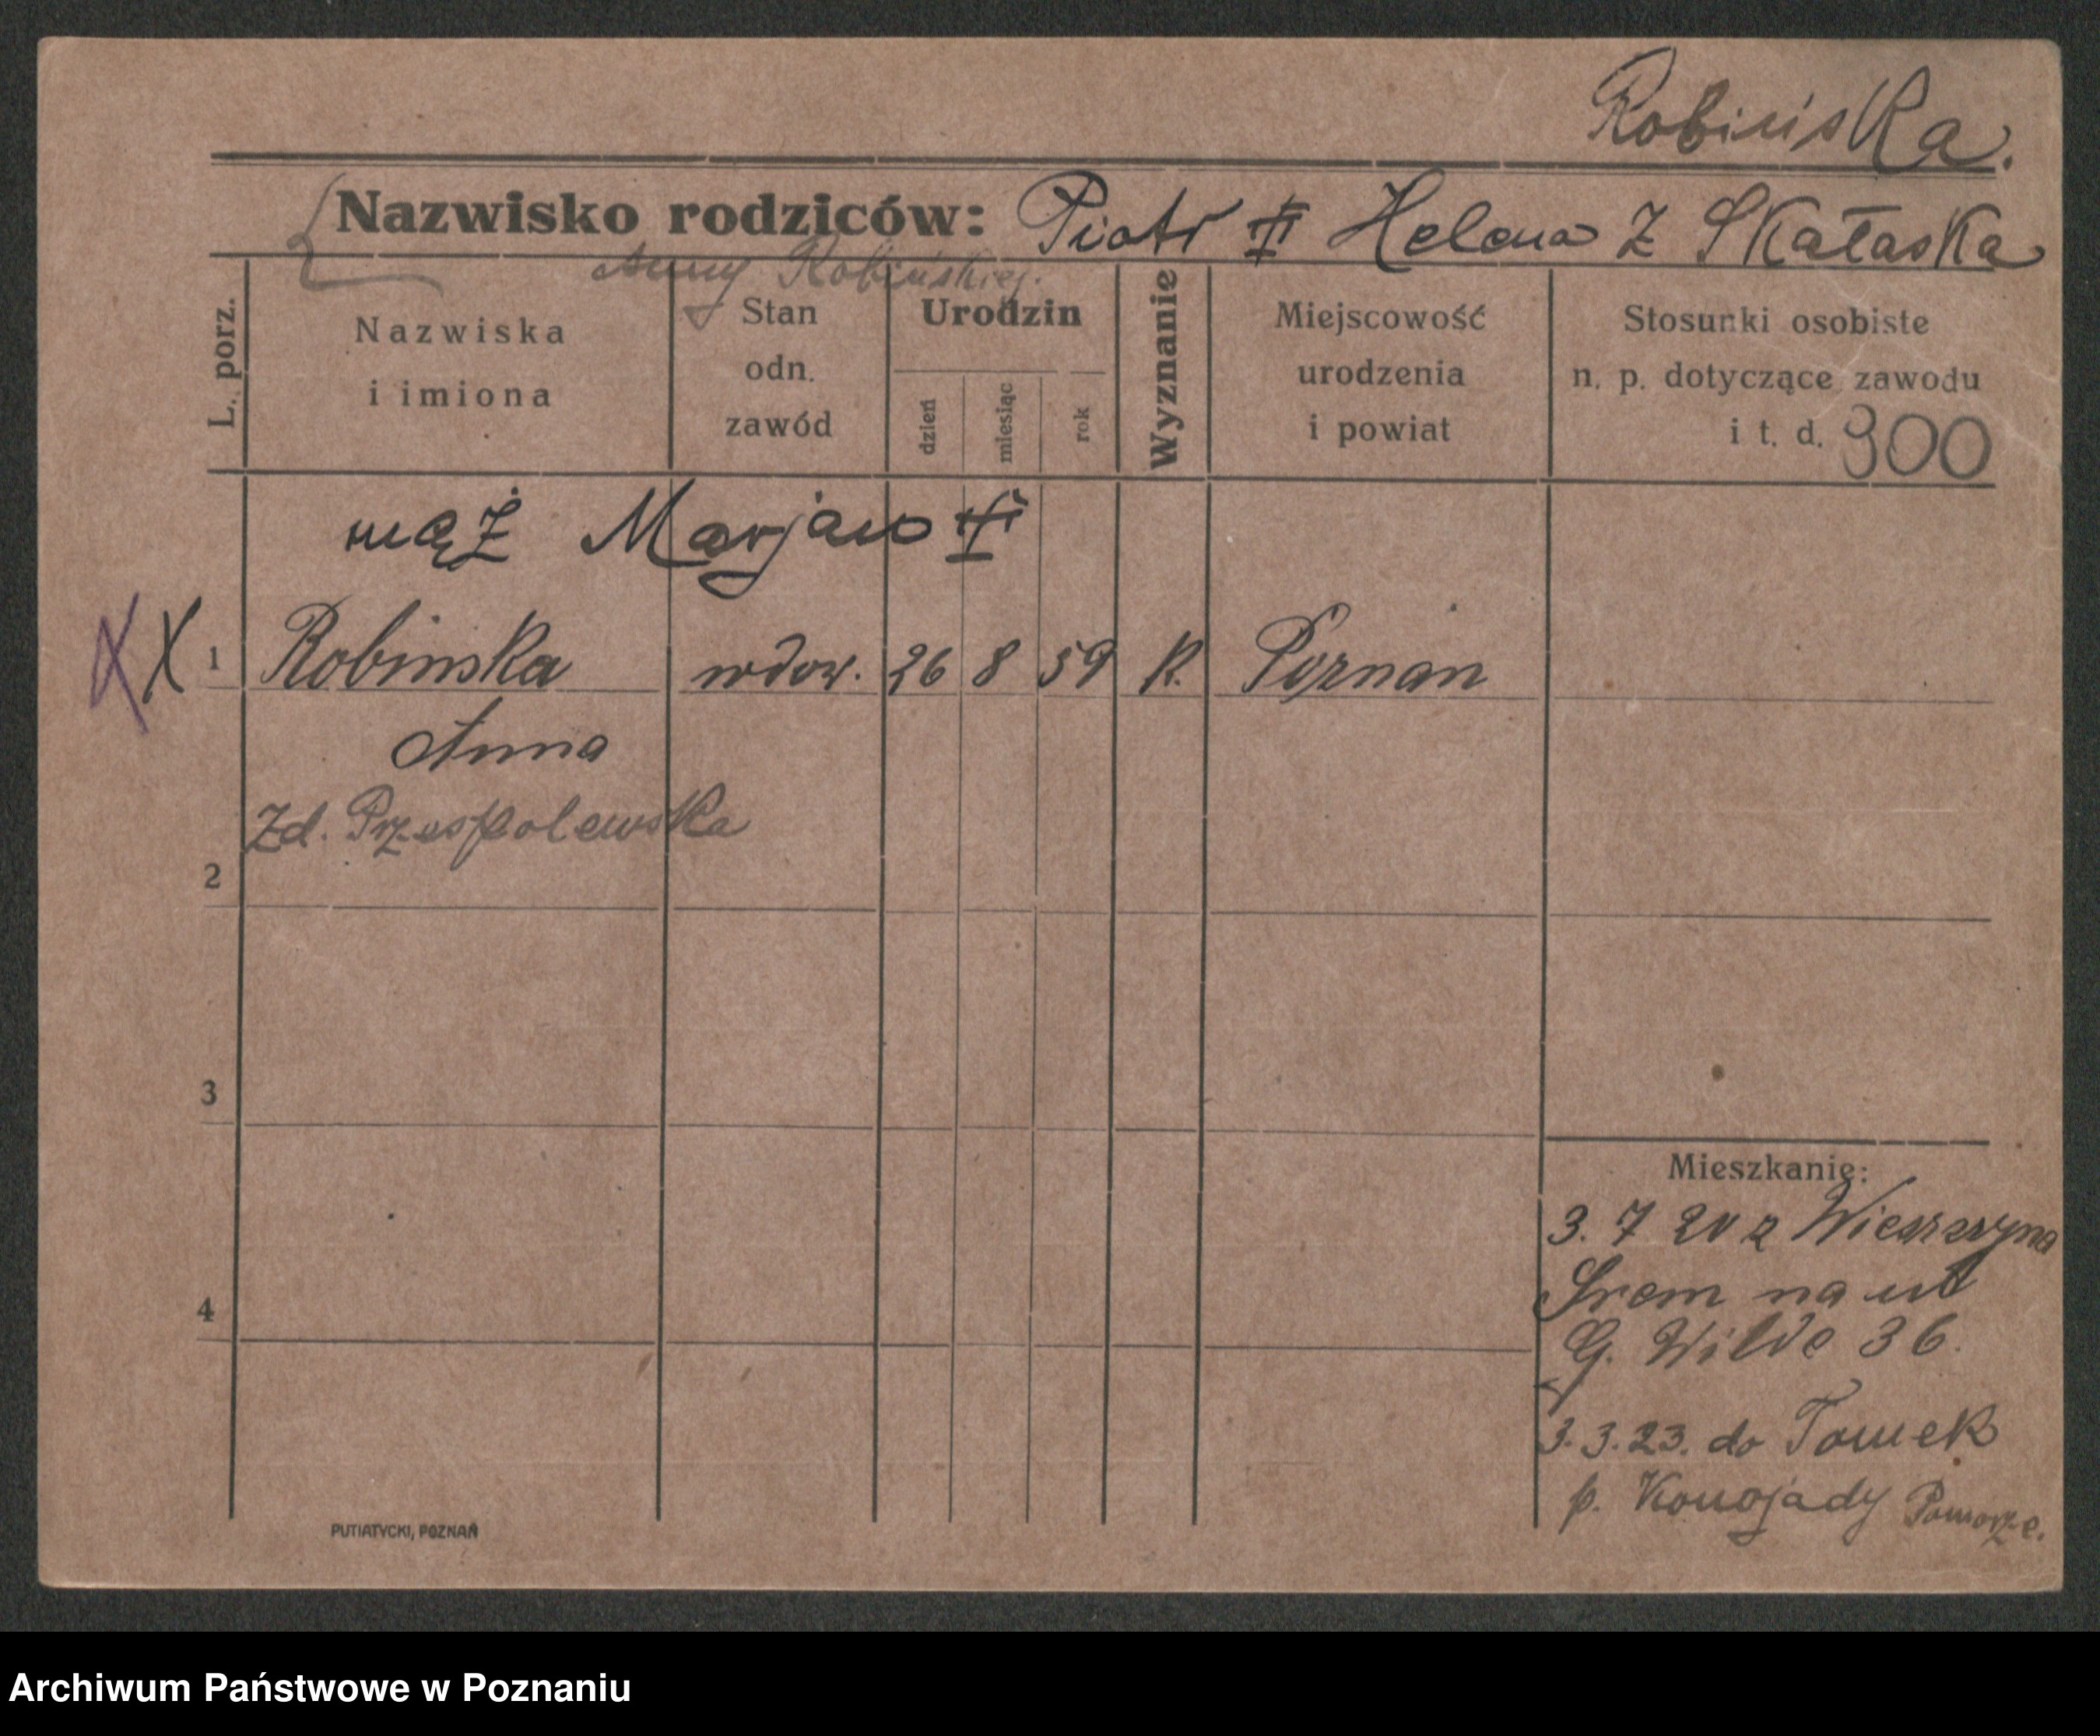 Robińska.
Nazwisko rodziców: Piotr Helena z Skałaska
Anny Robińskiej.
L. porz.
Nazwiska
i imiona
Stan
odn.
zawód
Urodzin
dzień
miesiąc
rok
Wyznanie
Miejscowość
urodzenia
i powiat
Stosunki osobiste
n. p. dotyczące zawodu
i t. d. 900
mąż Marjan
X X 1 Robinska wdow. 26 8 59 K. Poznan
Anna
Zd. Przespolewska
2
3
4
Mieszkanie:
3. 7 20 z Wieszczyna
Srem na ul
G. Wilde 36.
3.3.23. do Tomek
p. Konojady Pomorze.
PUTIATYCKI, POZNAŃ
Archiwum Państwowe w Poznaniu